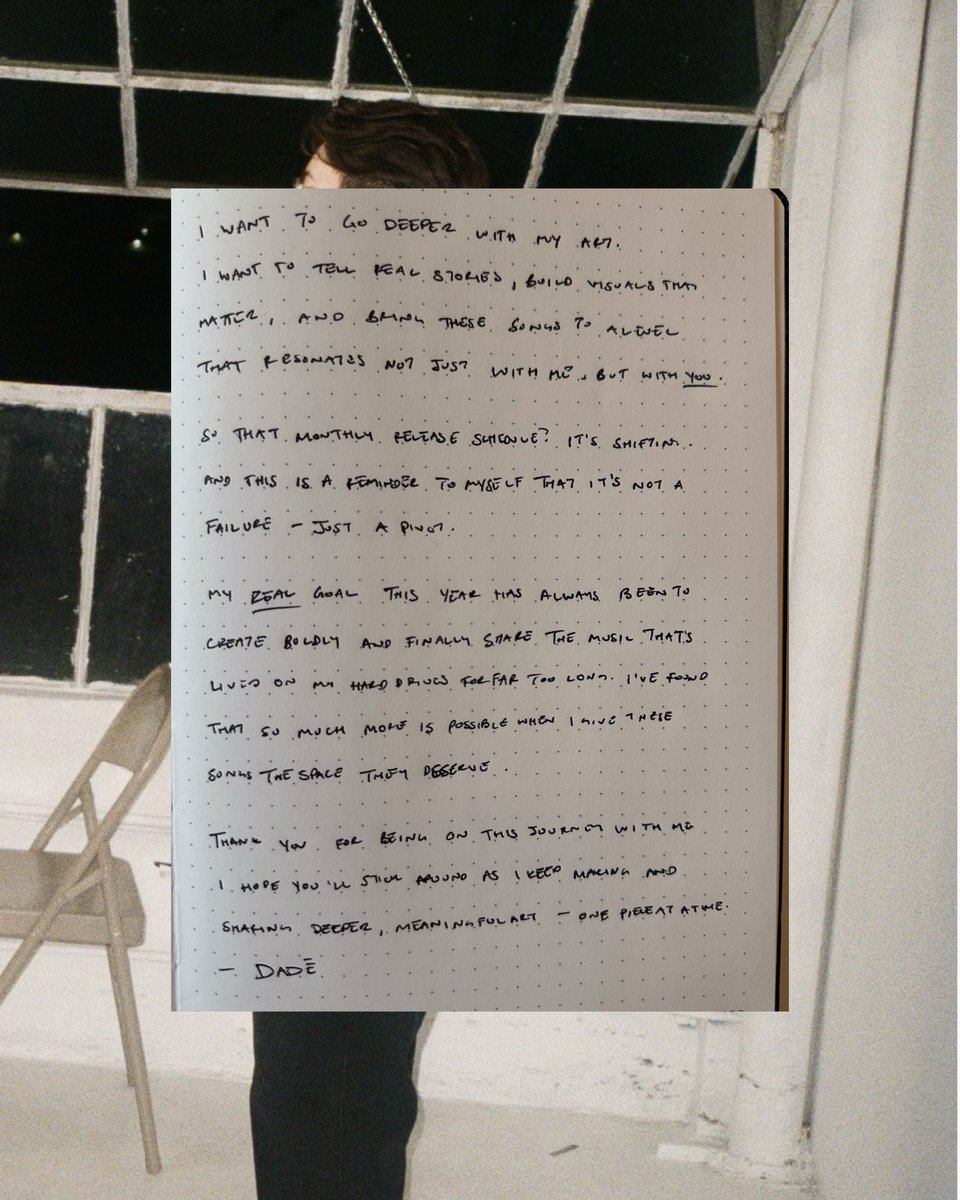 I WANT TO GO DEEPER WITH MY ART.
I WANT TO TELL REAL STORIES, BUILD VISUALS THAT
MATTER, AND BRING THESE SONGS TO A LEVEL
THAT RESONATES NOT JUST WITH ME, BUT WITH YOU.
SO THAT MONTHLY RELEASE SCHEDULE? IT'S SHIFTING.
AND THIS IS A REMINDER TO MYSELF THAT IT'S NOT A
FAILURE – JUST A PIVOT.
MY REAL GOAL THIS YEAR HAS ALWAYS BEEN TO
CREATE BOLDLY AND FINALLY SHARE THE MUSIC THAT'S
LIVED ON MY HARD DRIVES FOR FAR TOO LONG. I'VE FOUND
THAT SO MUCH MORE IS POSSIBLE WHEN I GIVE THESE
SONGS THE SPACE THEY DESERVE.
THANK YOU FOR BEING ON THIS JOURNEY WITH ME
I HOPE YOU'LL STICK AROUND AS I KEEP MAKING AND
SHARING DEEPER, MEANINGFUL ART – ONE PIECE AT A TIME.
– DADĒ